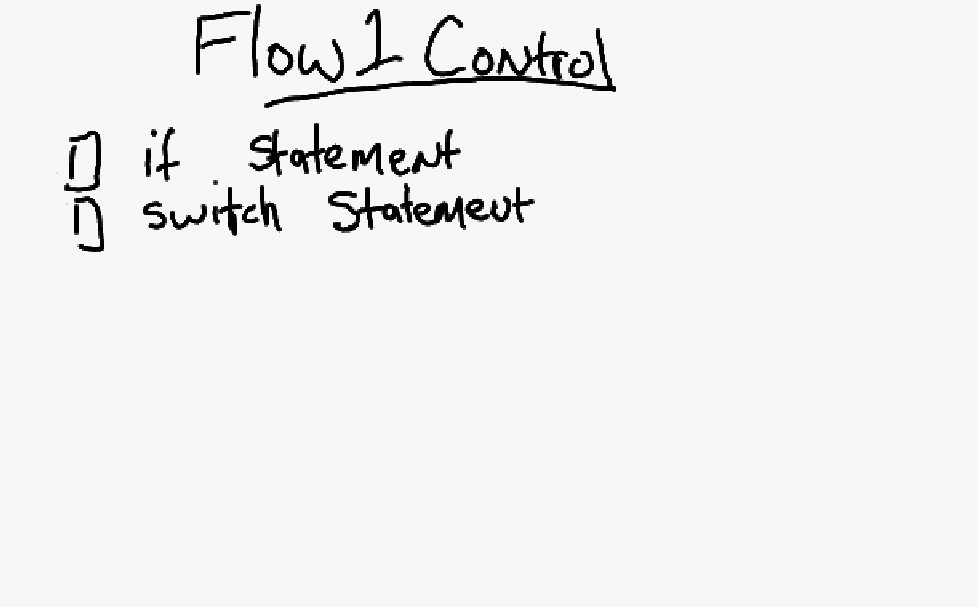 Flow 1 Control
if statement
switch Statement